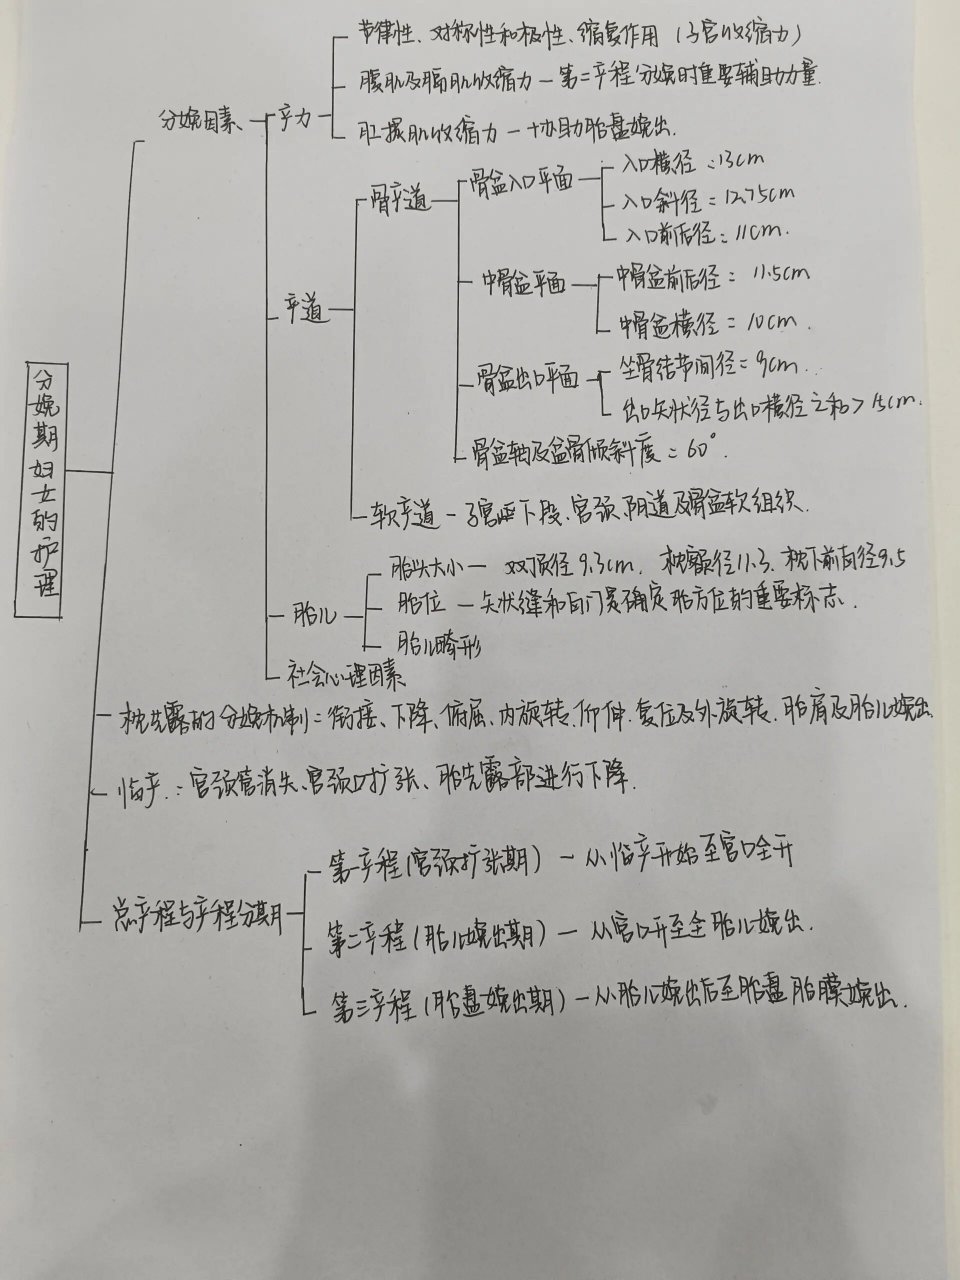 分娩期妇女的护理
分娩因素
产力
节律性、对称性和极性、缩复作用（子宫收缩力）
腹肌及膈肌收缩力－第二产程分娩时重要辅助力量.
肛提肌收缩力－协助胎盘娩出.
产道
骨产道
骨盆入口平面
入口横径：13cm
入口斜径＝12.75cm
入口前后径＝11cm.
中骨盆平面
中骨盆前后径＝11.5cm
中骨盆横径＝10cm.
骨盆出口平面
坐骨结节间径＝9cm.
出口矢状径与出口横径之和＞15cm.
骨盆轴及盆骨倾斜度＝60°.
软产道－子宫下段、宫颈、阴道及骨盆软组织.
胎儿
胎头大小－双顶径9.3cm. 枕额径11.3. 枕下前囟径9.5
胎位－矢状缝和囟门是确定胎方位的重要标志.
胎儿畸形
社会心理因素
枕先露的分娩机制：衔接、下降、俯屈、内旋转、仰伸.复位及外旋转.胎肩及胎儿娩出.
临产：宫颈管消失、宫颈口扩张、胎先露部进行下降.
总产程与产程分期
第一产程（宫颈扩张期）－从临产开始至宫口全开
第二产程（胎儿娩出期）－从宫口开至全胎儿娩出.
第三产程（胎盘娩出期）－从胎儿娩出后至胎盘胎膜娩出.